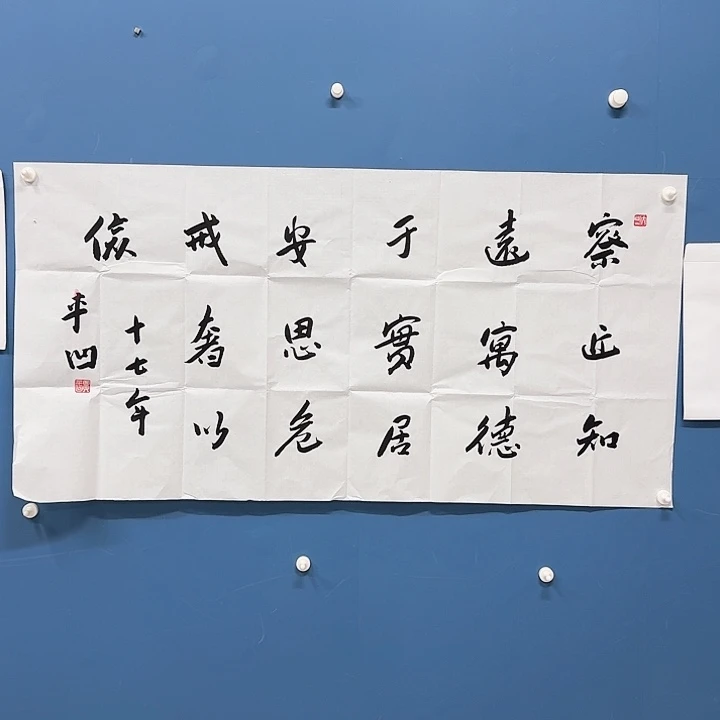 察近知
遠寓德
于實居
安思危
戒奢以
儉
十七年
平凹